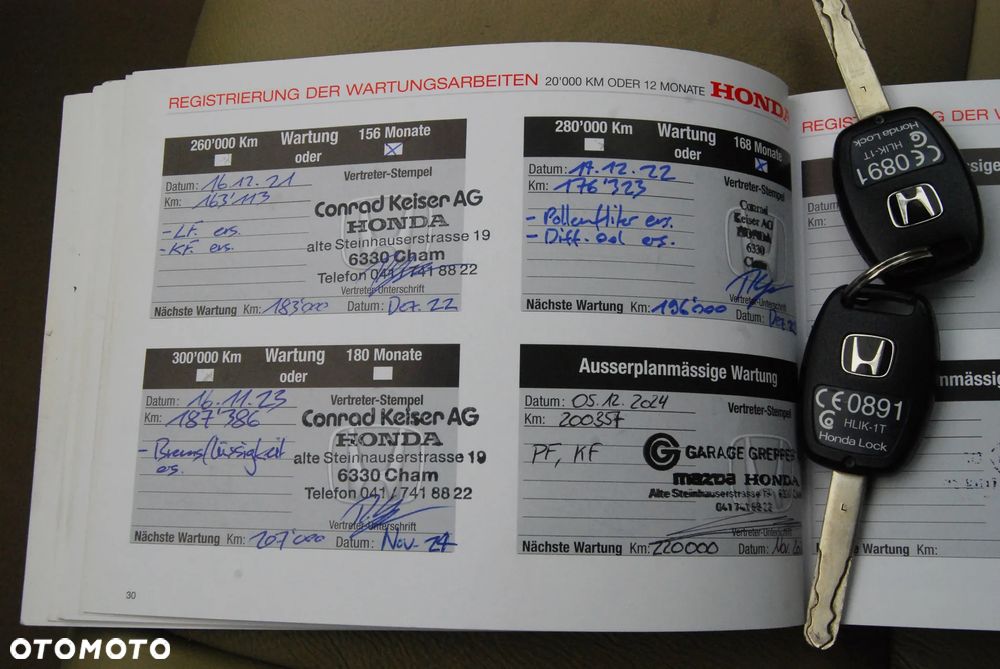 REGISTRIERUNG DER WARTUNGSARBEITEN 20'000 KM ODER 12 MONATE HONDA
260'000 Km Wartung oder 156 Monate
Datum: 16.12.21
Vertreter-Stempel
Km: 163'113
- LF ers.
- KF. ers.
Conrad Keiser AG
HONDA
alte Steinhauserstrasse 19
6330 Cham
Telefon 041/741 88 22
Vertreter-Unterschrift
Nächste Wartung Km: 183'000 Datum: Dez. 22
280'000 Km Wartung oder 168 Monate
Datum: 17.12.22
Vertreter-Stempel
Km: 176'323
- Pollenfilter ers.
- Diff. oel ers.
Conrad
Keiser AG
HONDA
6330
Cham
Vertreter-Unterschrift
Nächste Wartung Km: 196'000
Datum: Dez
300'000 Km Wartung oder 180 Monate
Datum: 16.11.23
Vertreter-Stempel
Km: 187'386
- Bremsflüssigkeit
ers.
Conrad Keiser AG
HONDA
alte Steinhauserstrasse 19
6330 Cham
Telefon 041/741 88 22
Vertreter-Unterschrift
Nächste Wartung Km: 207'000 Datum: Nov. 24
Ausserplanmässige Wartung
Datum: 05.12.2024
Vertreter-Stempel
Km: 200357
PF, KF
GARAGE GREPPER
mazda HONDA
Alte Steinhauserstrasse 19, 6330
041 741 88 22
Vertreter-Unterschrift
Nächste Wartung Km: 220000 Datum: Nov.
30
REGIS
G DER W
Datum
Km:
nmässig
Wartung Km:
CE0891
HLIK-1T
Honda Lock
CE0891
HLIK-1T
Honda Lock
OTOMOTO